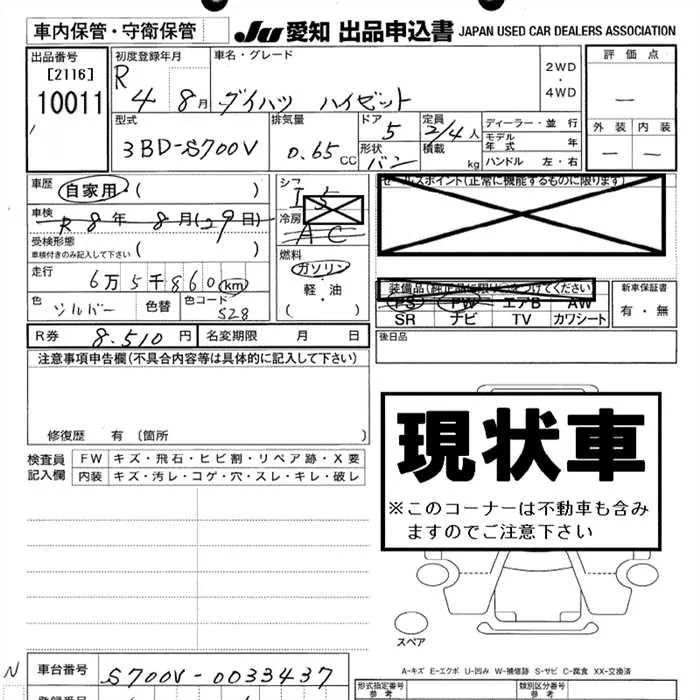 車内保管・守衛保管 JU 愛知 出品申込書 JAPAN USED CAR DEALERS ASSOCIATION
出品番号 [2116] 10011
初度登録年月 R 4 8月
車名・グレード ダイハツ ハイゼット
2WD・4WD
評価点 —
外装 内装
— —
型式 3BD-S700V
排気量 0.65 CC
ドア 5
形状 バン
定員 2/4人
積載 kg
ディーラー・並行
モデル年式 年
ハンドル 左・右
車歴 自家用 ( )
車検 R8年 8月(29日)
受検形態
車検付きのみ記入して下さい ( )
走行 6万5千860km
色 シルバー 色替 色コード S28
シフ
冷房 AC
燃料
ガソリン
・
軽・油
( )
セールスポイント(正常に機能するものに限ります)
装備品(純正品に限り○をつけてください)
PS PW エアB AW
SR ナビ TV カワシート
新車保証書
有・無
R券 8.510円 名変期限 月 日
後日品
注意事項申告欄(不具合内容等は具体的に記入して下さい)
修復歴 有 〔箇所 〕
検査員記入欄
FW キズ・飛石・ヒビ割・リペア跡・X要
内装 キズ・汚レ・コゲ・穴・スレ・キレ・破レ
現状車
※このコーナーは不動車も含み
ますのでご注意下さい
スペア
A-キズ E-エクボ U-凹み W-補修跡 S-サビ C-腐食 XX-交換済
N 車台番号 S700V-0033437
型式指定番号 参考
類別区分番号 参考